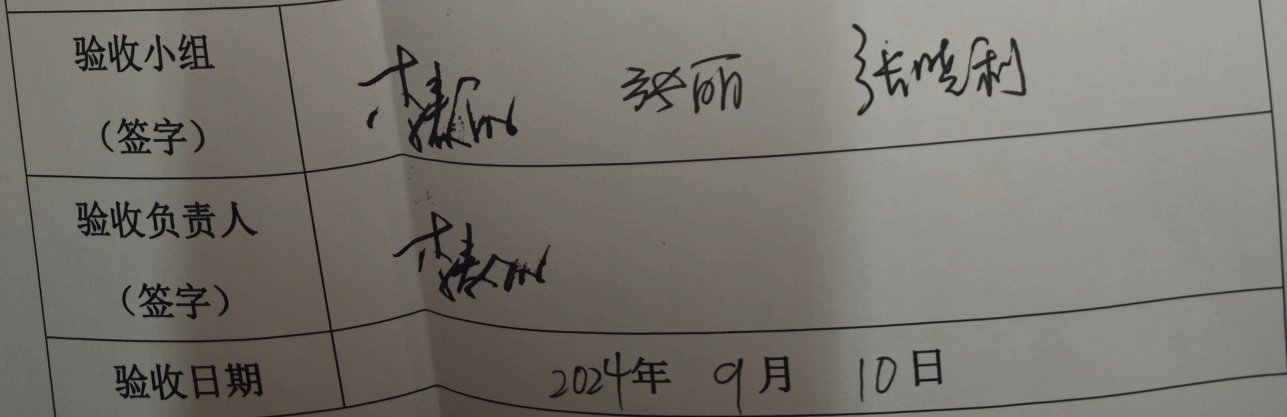 验收小组
(签字)
张丽 张晓利
验收负责人
(签字)
验收日期
2024年 9月 10日